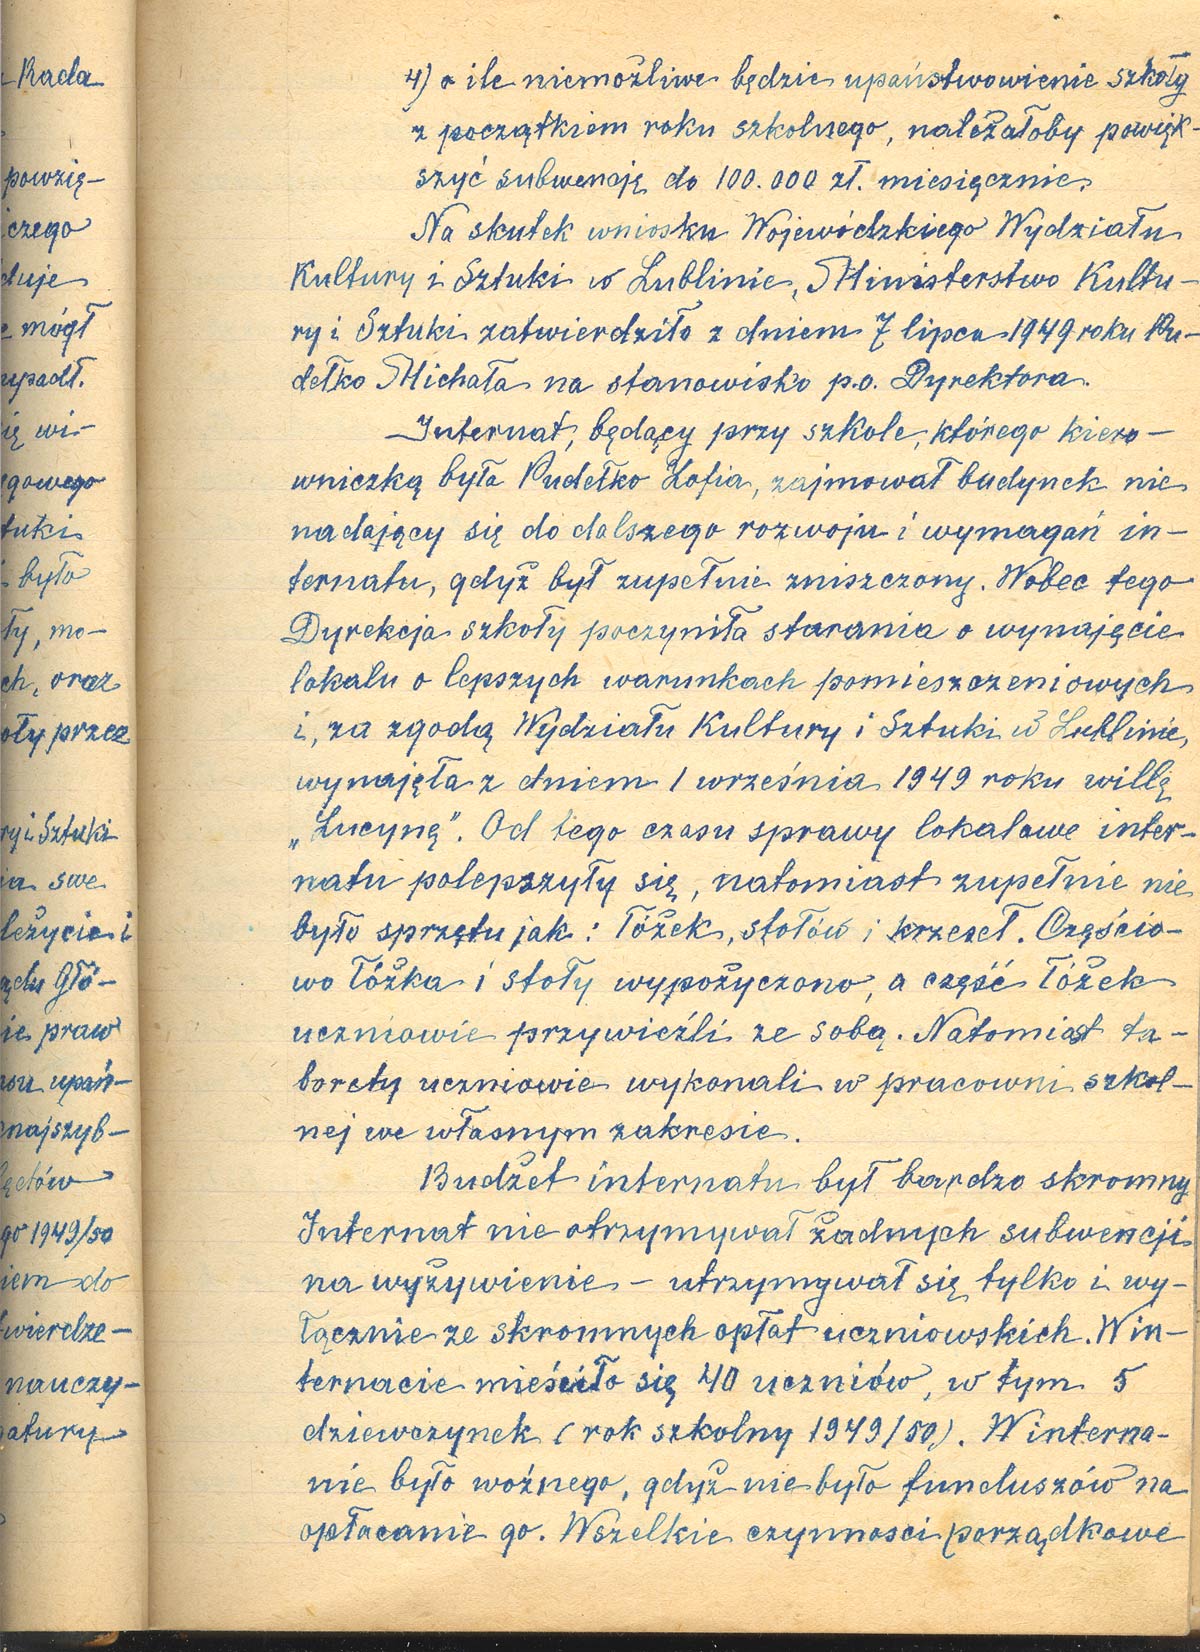 Rada
powzię-
iczego
duje
mógł
upadł.
ię wi-
gowego
tuki
było
ły, mo-
ch, oraz
oły przez
ry i Sztuki
ia swe
leżycie i
ądu Głó-
ie praw
su upań-
najszyb-
lętów
go 1949/50
iem do
twierdze-
nauczy-
atury
4) o ile niemożliwe będzie upaństwowienie szkoły
z początkiem roku szkolnego, należałoby powięk-
szyć subwencję do 100.000 zł. miesięcznie.
Na skutek wniosku Wojewódzkiego Wydziału
Kultury i Sztuki w Lublinie, Ministerstwo Kultu-
ry i Sztuki zatwierdziło z dniem 7 lipca 1949 roku Pu-
dełko Michała na stanowisko p.o. Dyrektora.
Internat, będący przy szkole, którego kiero-
wniczką była Pudełko Zofia, zajmował budynek nie
nadający się do dalszego rozwoju i wymagań in-
ternatu, gdyż był zupełnie zniszczony. Wobec tego
Dyrekcja szkoły poczyniła starania o wynajęcie
lokalu o lepszych warunkach pomieszczeniowych
i, za zgodą Wydziału Kultury i Sztuki w Lublinie,
wynajęła z dniem 1 września 1949 roku willę
„Lucynę”. Od tego czasu sprawy lokalowe inter-
natu polepszyły się, natomiast zupełnie nie
było sprzętu jak: łóżek, stołów i krzeseł. Częścio-
wo łóżka i stoły wypożyczono, a część łóżek
uczniowie przywieźli ze sobą. Natomiast ta-
borety uczniowie wykonali w pracowni szkol-
nej we własnym zakresie.
Budżet internatu był bardzo skromny
Internat nie otrzymywał żadnych subwencji
na wyżywienie – utrzymywał się tylko i wy-
łącznie ze skromnych opłat uczniowskich. W in-
ternacie mieściło się 40 uczniów, w tym 5
dziewczynek (rok szkolny 1949/50). W interna-
nie było woźnego, gdyż nie było funduszów na
opłacanie go. Wszelkie czynności porządkowe